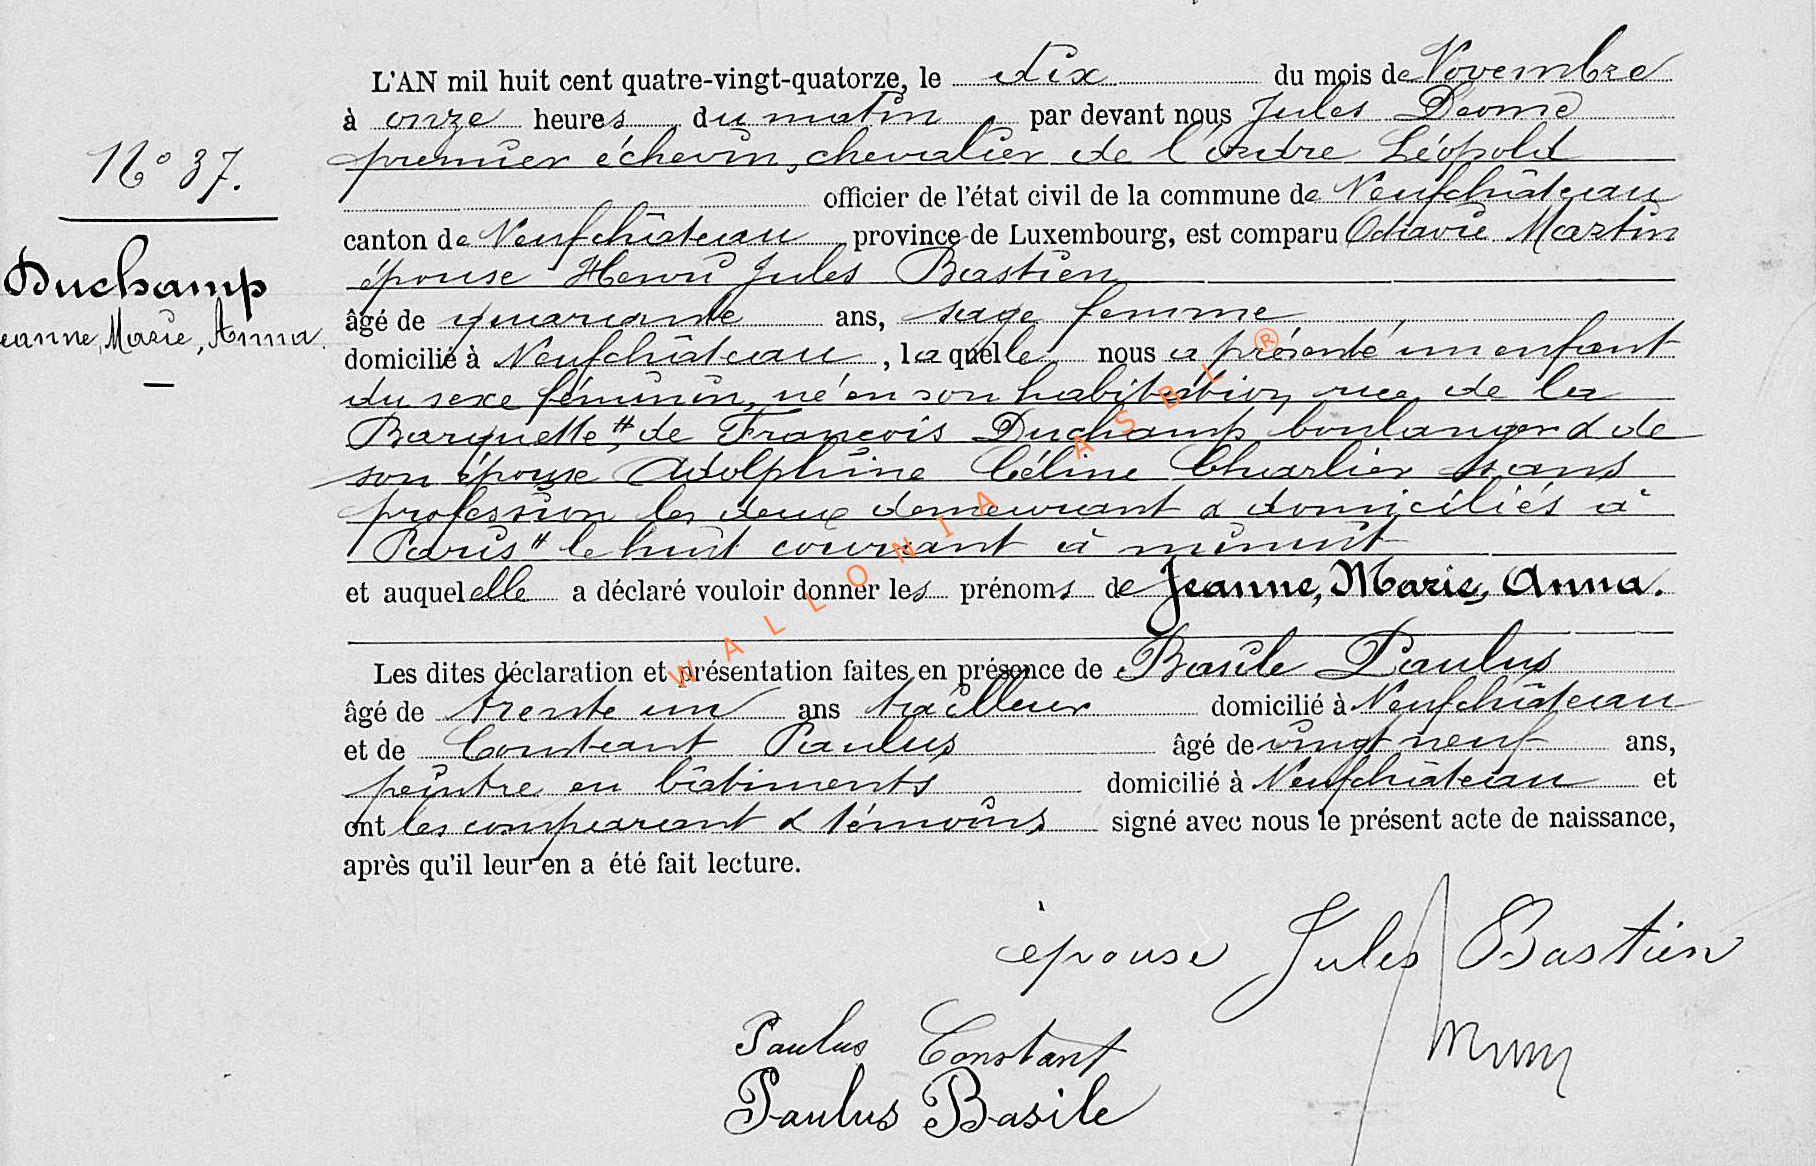 L'AN mil huit cent quatre-vingt-quatorze, le dix du mois de Novembre
à onze heures du matin par devant nous Jules Deome
premier échevin, chevalier de l'ordre Léopold
officier de l'état civil de la commune de Neufchâteau
canton de Neufchâteau province de Luxembourg, est comparu Octavie Martin
épouse Henri Jules Bastien
âgé de quarante ans, sage femme
domicilié à Neufchâteau, laquelle nous a présenté un enfant
du sexe féminin, né en son habitation, rue de la
Barquette, de François Duchamp boulanger & de
son épouse Adolphine Céline Charlier sans
profession les deux demeurant & domiciliés à
Paris le huit courant à minuit
et auquel elle a déclaré vouloir donner les prénoms de Jeanne, Marie, Anna.
Les dites déclaration et présentation faites en présence de Basile Paulus
âgé de trente un ans tailleur domicilié à Neufchâteau
et de Constant Paulus âgé de vingt neuf ans,
peintre en bâtiments domicilié à Neufchâteau et
ont les comparant & témoins signé avec nous le présent acte de naissance,
après qu'il leur en a été fait lecture.
N° 37.
Duchamp
eanne, Marie, Anna.
épouse Jules Bastien
Paulus Constant
Paulus Basile
WALLONIA ASBL ®